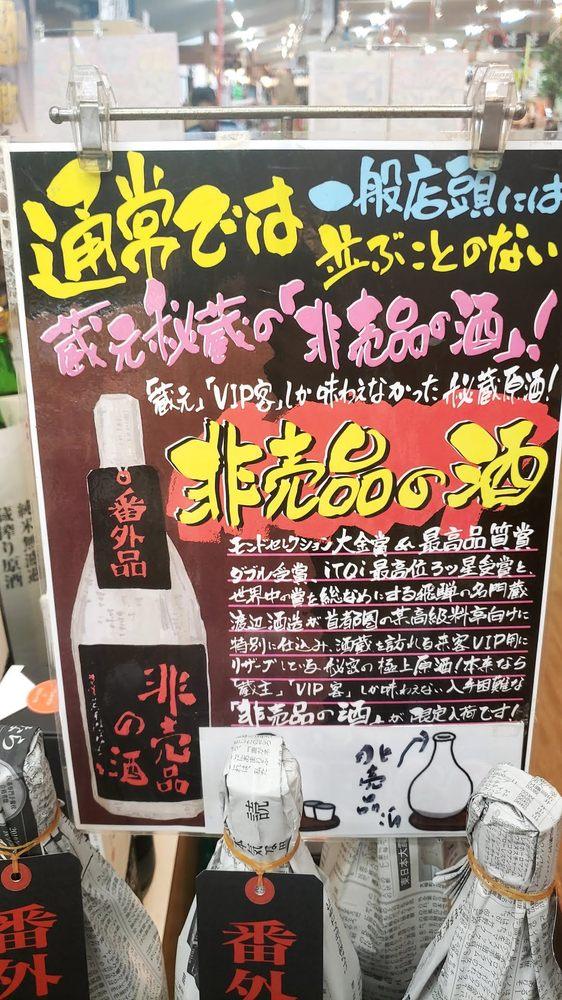 通常では
一般店頭には
並ぶことのない
蔵元秘蔵の「非売品の酒」!
「蔵元」「VIP客」しか味わえなかった秘蔵原酒!
非売品の酒
モンドセレクション大金賞&最高品質賞
ダブル受賞、iTQi最高位3ッ星受賞と、
世界中の賞を総なめにする飛騨の名門蔵
渡辺酒造が首都圏の某高級料亭向けに
特別に仕込み、酒蔵を訪れる来客VIP用に
リザーブしている秘密の極上原酒!本来なら
「蔵主」「VIP客」しか味わえない入手困難な
「非売品の酒」が限定入荷です!
番外品
非売品
の酒
非売品の酒
純米無濾過
蔵搾り原酒
読
番外
番外
東日本大